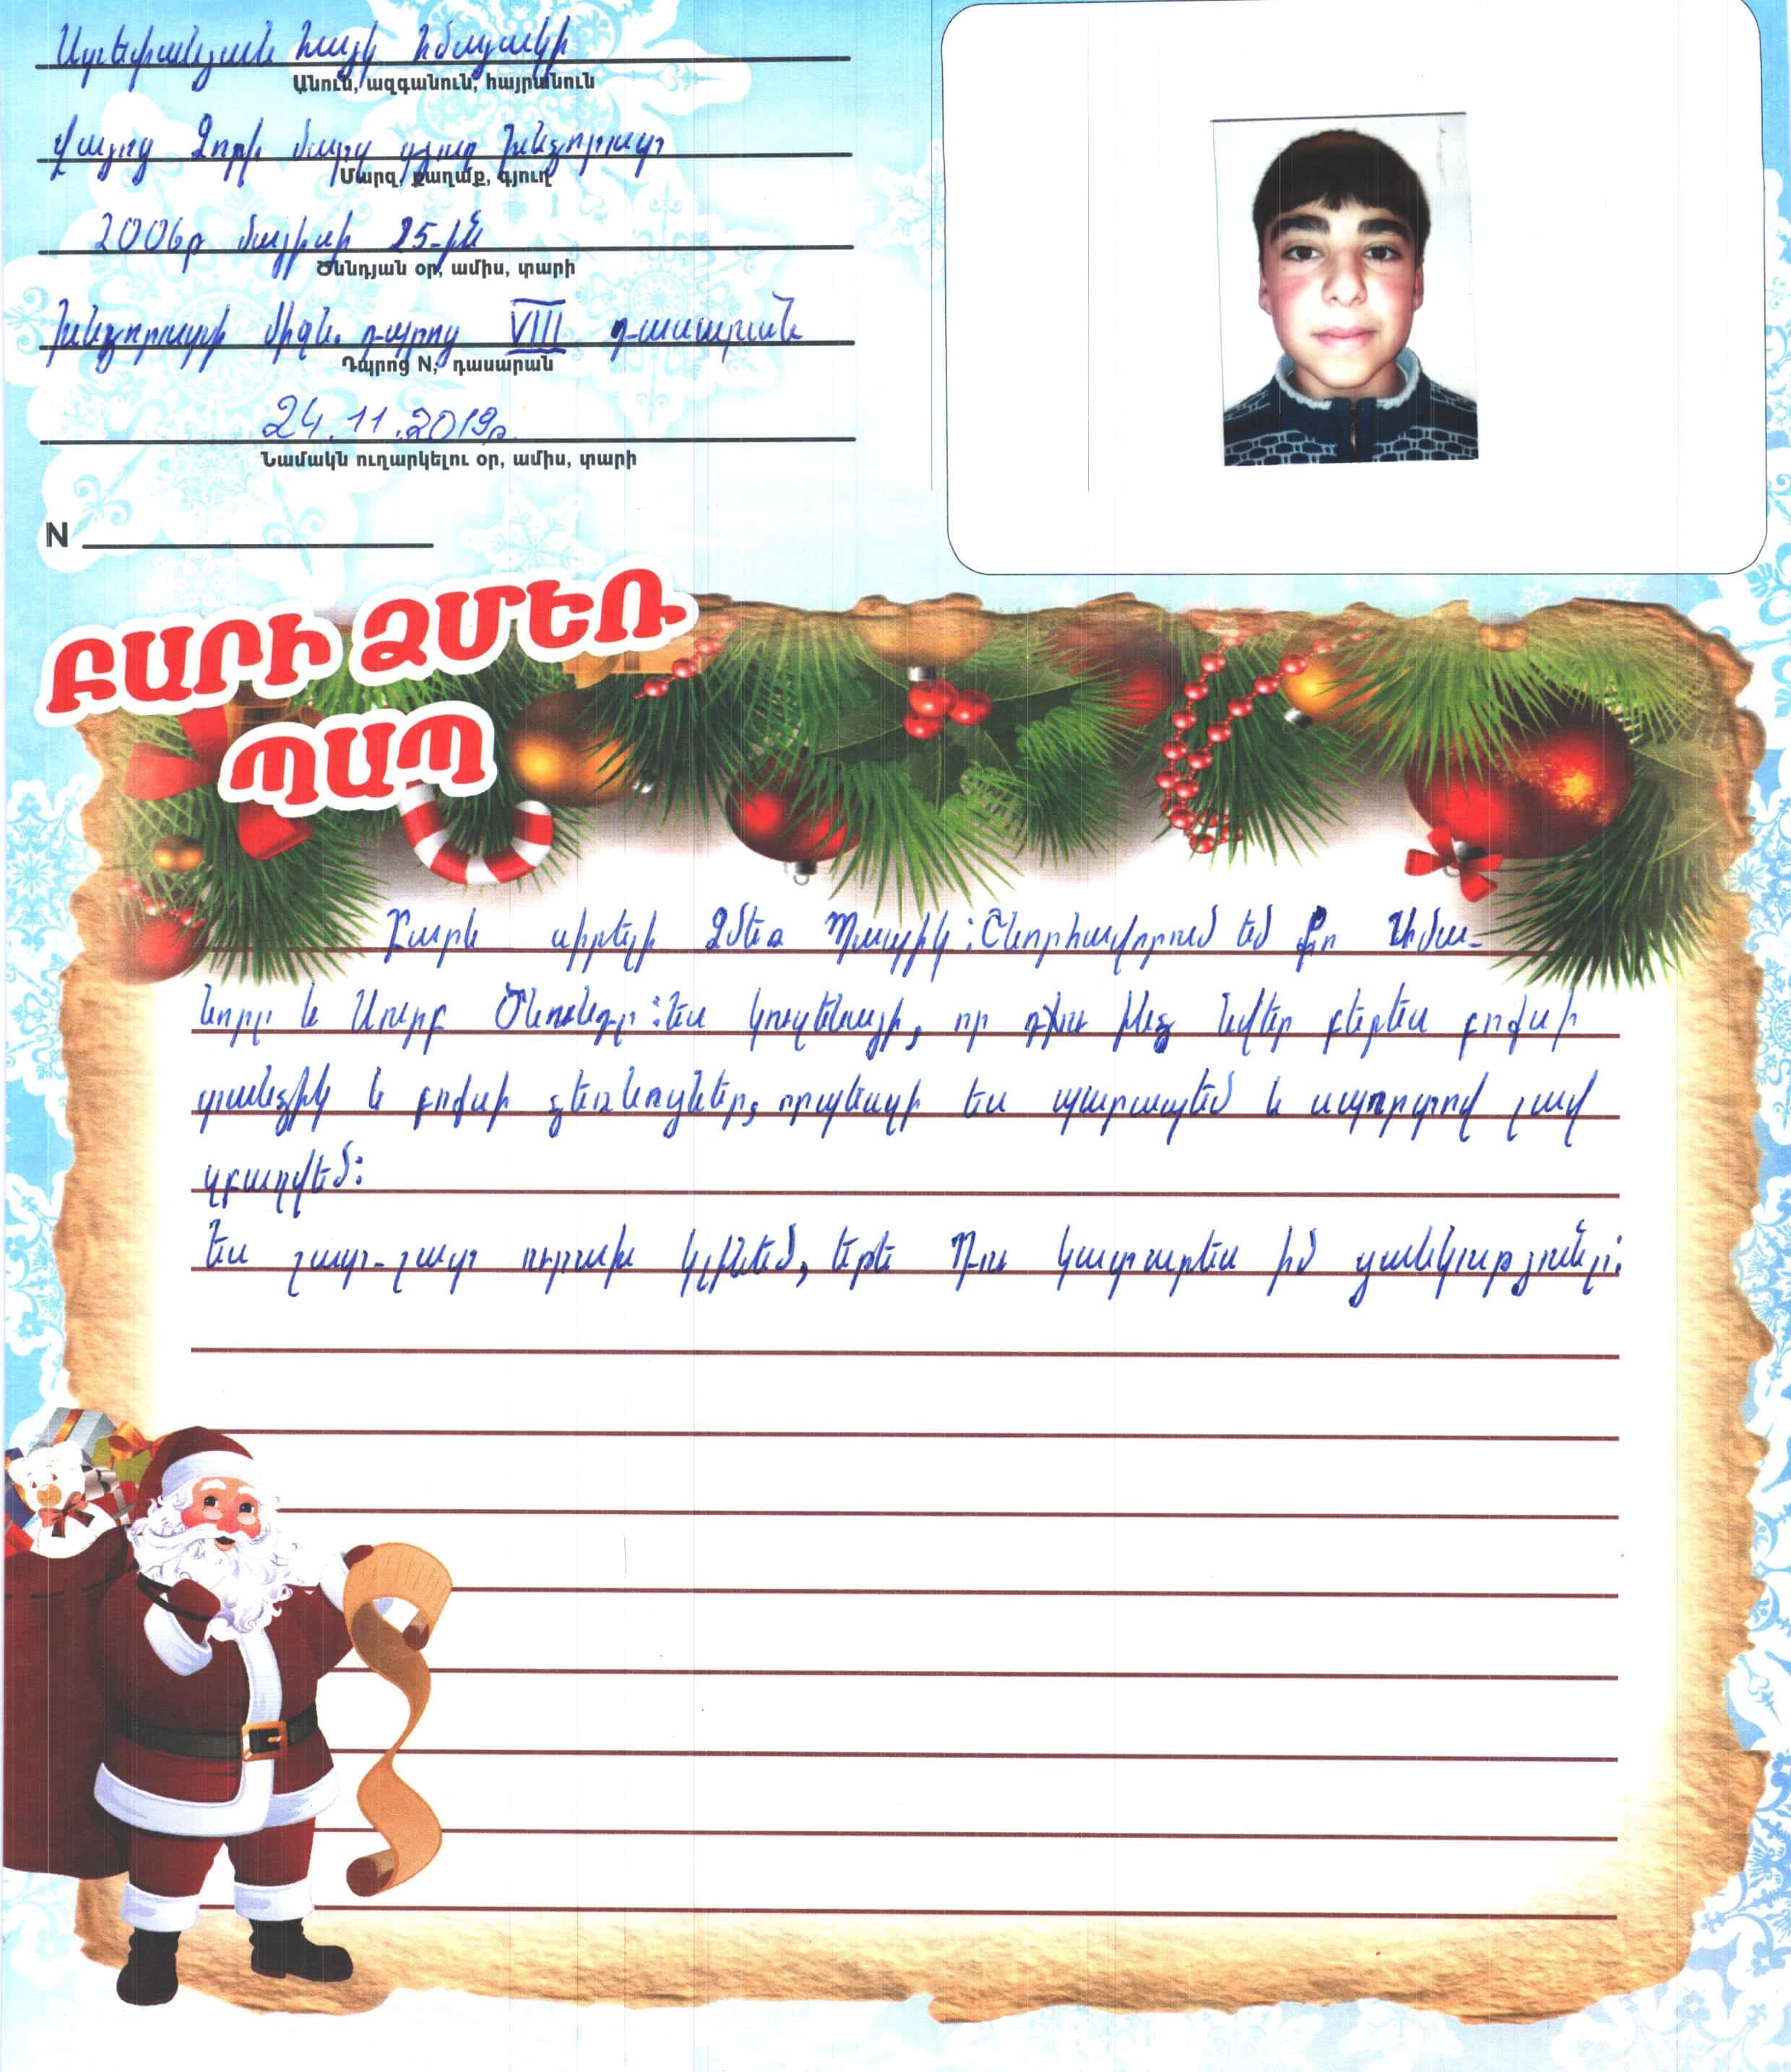 Ստեփանյան Հայկ Հմայակի
Անուն, ազգանուն, հայրանուն
Վայոց Ձորի մարզ գյուղ Խնձորուտ
Մարզ, քաղաք, գյուղ
2006թ մայիսի 25-ին
Ծննդյան օր, ամիս, տարի
Խնձորուտի միջն. դպրոց VIII դասարան
Դպրոց N, դասարան
24.11.2019թ.
Նամակն ուղարկելու օր, ամիս, տարի
N
ԲԱՐԻ ՁՄԵՌ
ՊԱՊ
Բարև սիրելի Ձմեռ Պապիկ: Շնորհավորում եմ քո Ամա-
նորը և Սուրբ Ծնունդը: Ես կուզենայի, որ դու ինձ նվեր բերես բոքսի
տանձիկ և բոքսի ձեռնոցներ, որպեսզի ես պարապեմ և սպորտով լավ
զբաղվեմ:
Ես շատ-շատ ուրախ կլինեմ, եթե Դու կատարես իմ ցանկությունը: